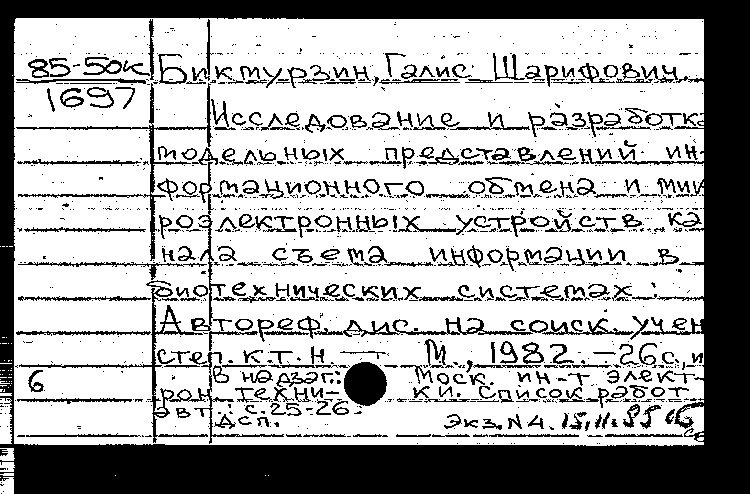 85-50к Биктурзин, Галис Шарифович.
1697
Исследование и разработка
модельных представлений ин-
формационного обмена и мик
роэлектронных устройств ка
нала съема информации в
биотехнических системах :
Автореф. дис. на соиск. учен
степ. к.т.н. — М., 1982. — 26 с, ил
6 В надзаг.: Моск. ин-т элект-
рон. техни- ки. Список работ
авт.: с.25-26.
Дсп. Экз. N4. 15.11.85